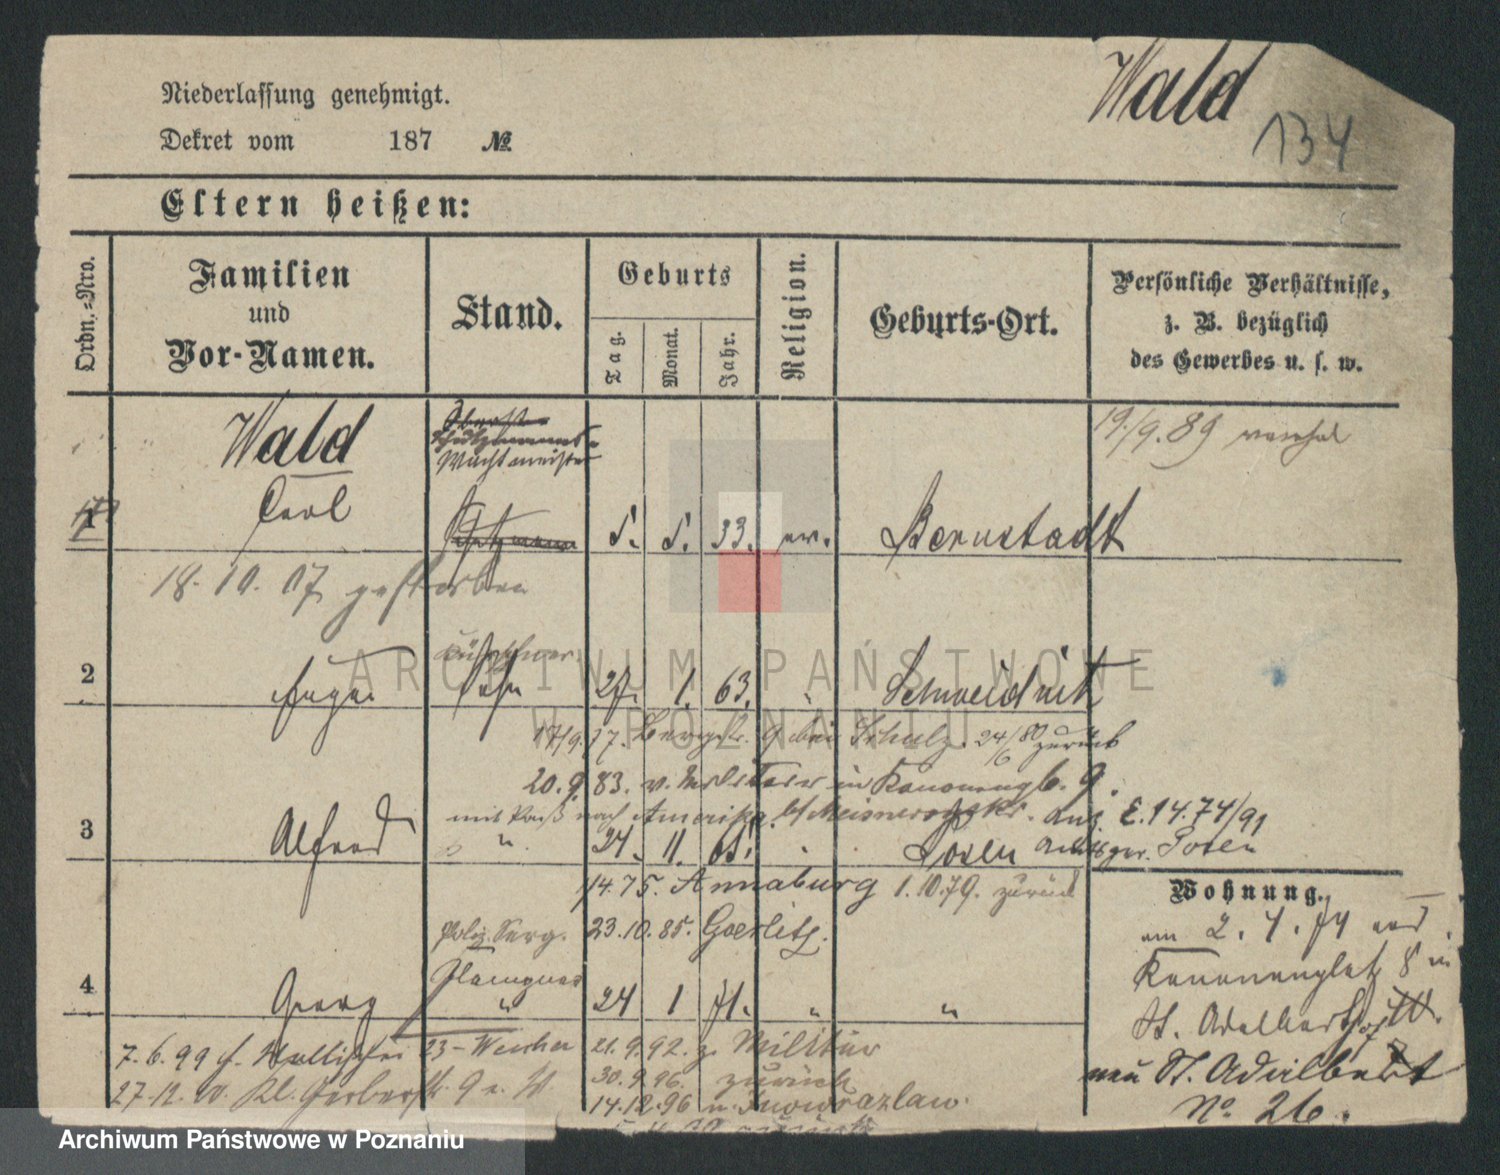 Wald
134
Niederlassung genehmigt.
Dekret vom 187 №
Eltern heißen:
Ordn.-Nro.
Familien
und
Vor-Namen.
Stand.
Geburts
Tag.
Monat.
Jahr.
Religion.
Geburts-Ort.
Persönliche Verhältnisse,
z. B. bezüglich
des Gewerbes u. s. w.
Wald
Schutzmanns-
Wachtmeister
19./9.89
1 Carl 5. 5. 33. ev. Bernstadt
18.10.07 gestorben
2 Eugen Sohn 27. 1. 63. " Schweidnitz
17/9.77. 9 bei Schulz. 24/6 80 zurück
20.9.83. v. Militair in Kanonenpl. 9.
mit Paß nach Amerika. E.14.74/91
3 Alfred " 24. 11. 65. " Posen
1/4.75. Annaburg 1.10.79. zurück
23.10.85. Goerlitz.
4 Georg " 24 1 71. " "
7.6.99 23 21.9.92. z. Militär
30.9.96. zurück
27.12. Kl. Gerberstr. 9
14.12.96 n. Inowrazlaw.
Wohnung.
am 2.4.74
Kanonenplatz 8
St. Adalbert
neu St. Adalbert
No. 26.
ARCHIWUM PAŃSTWOWE
W POZNANIU
Archiwum Państwowe w Poznaniu